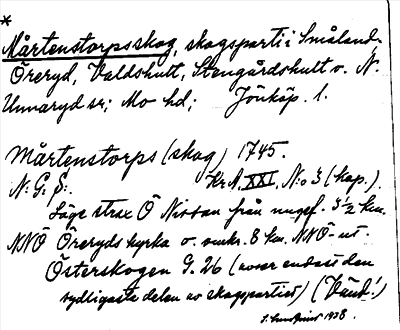 *
Mårtenstorpsskog, skogsparti i Småland,
Öreryd, Valdshult, Stengårdshult o. N.
Unnaryd sr; Mo hd; Jönköp. l.
Mårtenstorps (skog) 1745.
N: G: S:. Kr. A. XXI, N:o 3 (kop.).
Läge strax Ö Nissan från ungef. 3 1/2 km.
NNÖ Öreryds kyrka o. omkr. 8 km. NNÖ-ut.
Österskogen G. 26 (avser endast den
sydligaste delen av skogspartiet) (Vänd!)
1928.